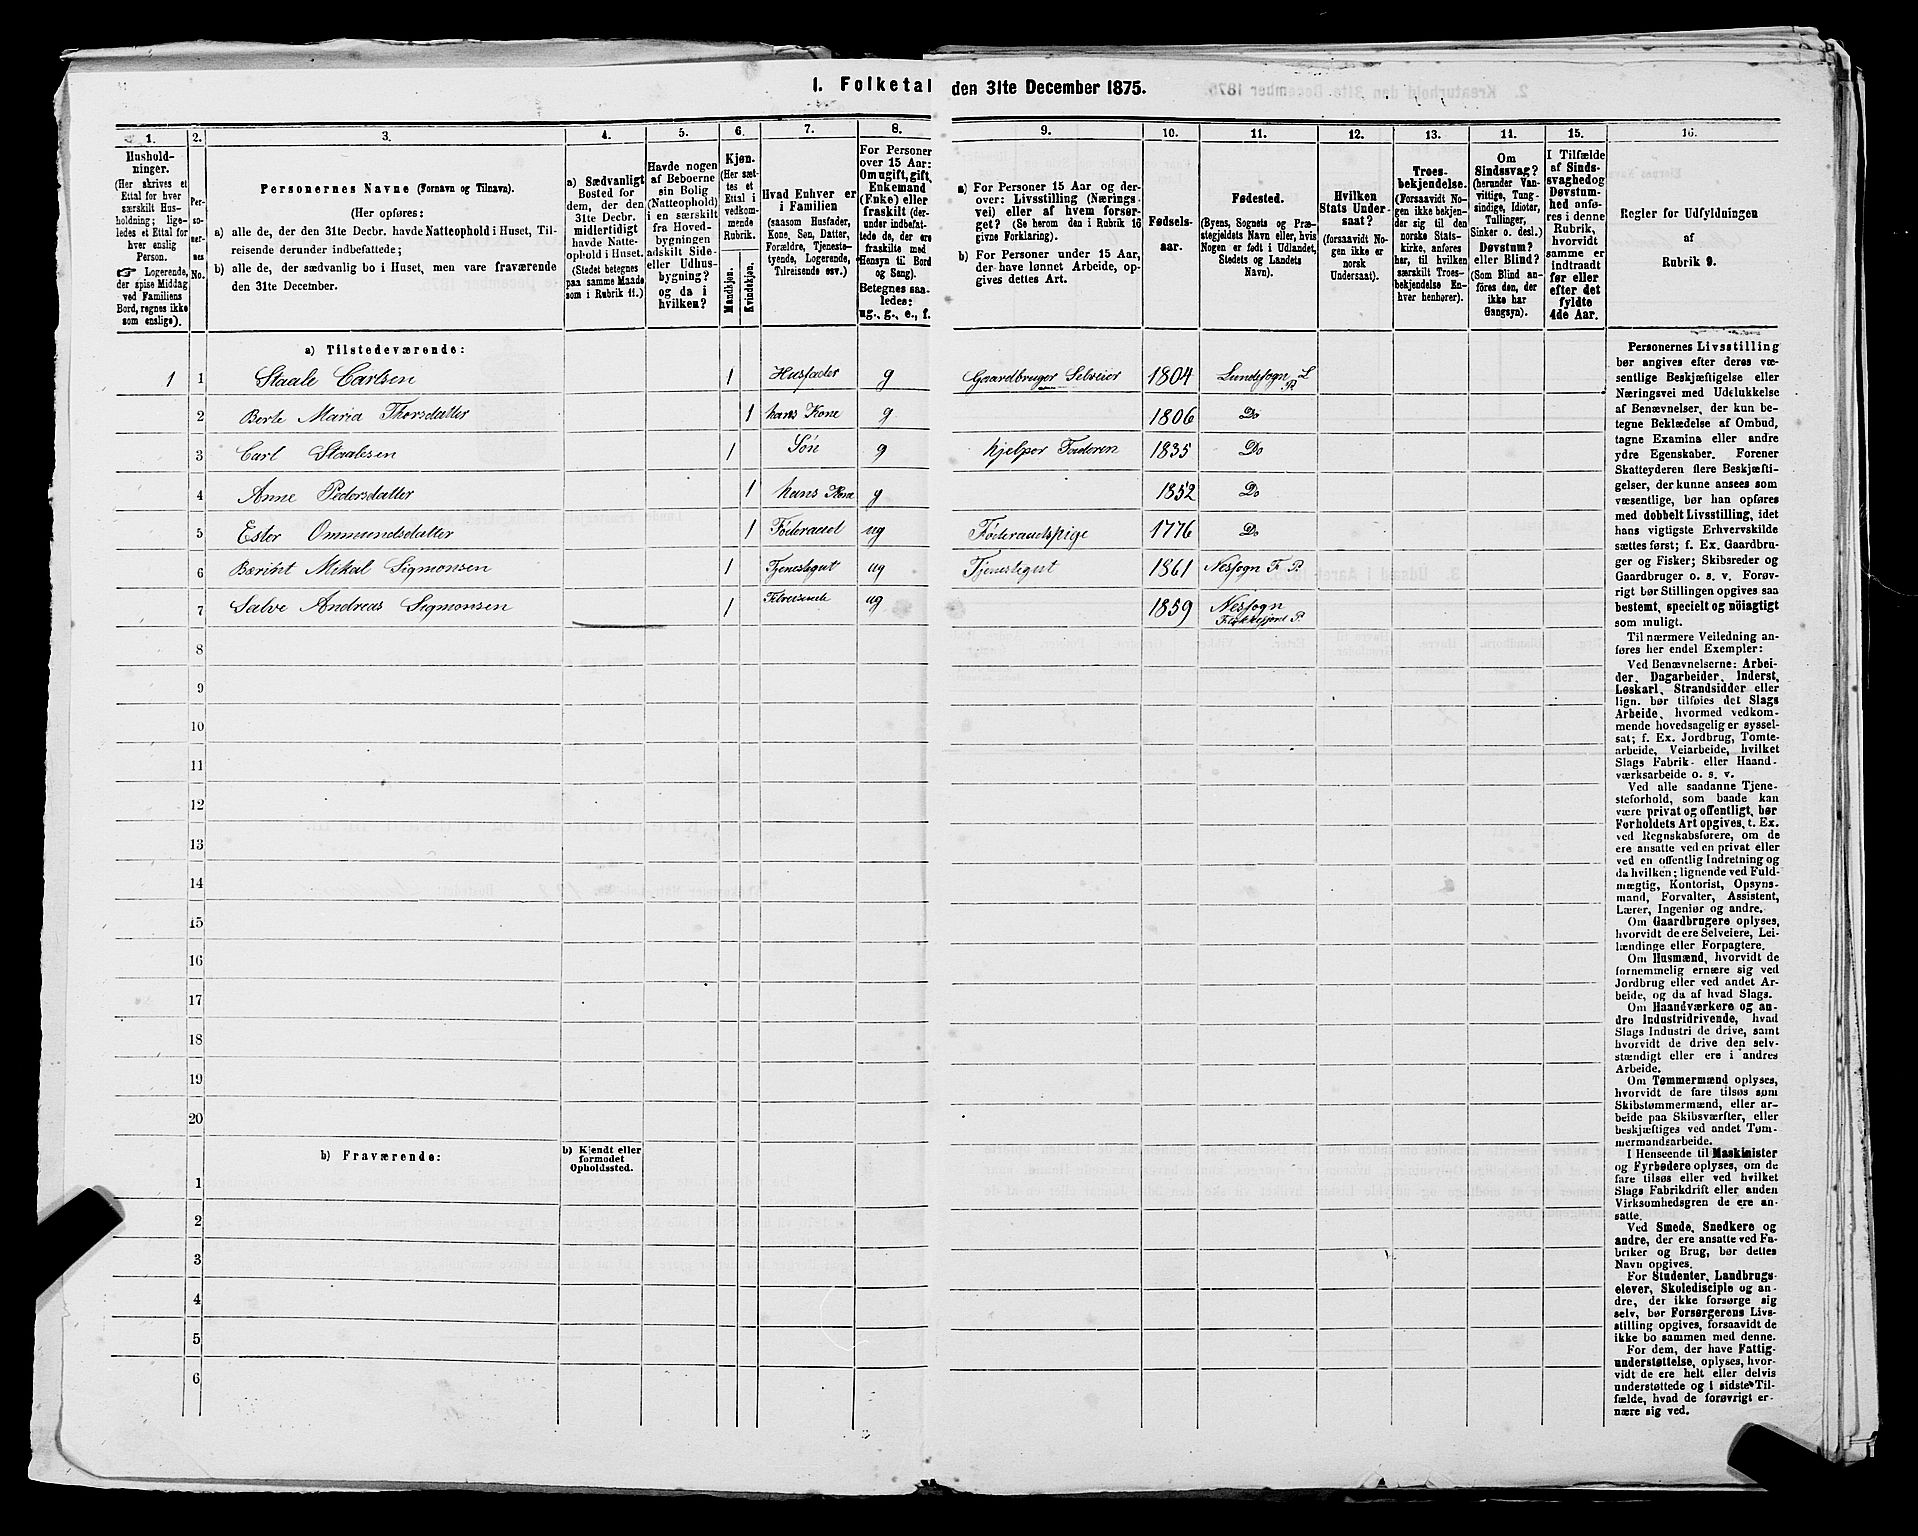 1. Folketal den 31te December 1875.
1. 2. 3. 4. 5. 6. 7. 8. 9. 10. 11. 12. 13. 14. 15. 16.
Hushold-
ninger.
(Her skrives et
Ettal for hver
særskilt Hus-
holdning; lige-
ledes et Ettal for
hver enslig
Person.
☞ Logerende,
der spise Middag
ved Familiens
Bord, regnes ikke
som enslige).
Per-
so-
ner-
nes
No.
Personernes Navne (Fornavn og Tilnavn).
(Her opføres:
a) alle de, der den 31te Decbr. havde Natteophold i Huset, Til-
reisende derunder indbefattede;
b) alle de, der sædvanlig bo i Huset, men vare fraværende
den 31te December.
a) Sædvanligt
Bosted for
dem, der den
31te Decbr.
midlertidigt
havde Natte-
ophold i Huset.
(Stedet betegnes
paa samme Maade
som i Rubrik 11.)
Havde nogen
af Beboerne
sin Bolig
(Natteophold)
i en særskilt
fra Hoved-
bygningen
adskilt Side-
eller Udhus-
bygning?
og da i
hvilken?
Kjøn.
(Her sæt-
tes et
Ettal i
vedkom-
mende
Rubrik.
Mandkjøn.
Kvindekjøn.
Hvad Enhver er
i Familien
(saasom Husfader,
Kone, Søn, Datter,
Forældre, Tjeneste-
tyende, Logerende,
Tilreisende osv.)
For Personer
over 15 Aar:
Om ugift, gift,
Enkemand
(Enke) eller
fraskilt (der-
under indbefat-
tede de, der ere
fraskilte med
Hensyn til Bord
og Seng).
Betegnes saa-
ledes:
ug., g., e., f.
a) For Personer 15 Aar og der-
over: Livsstilling (Nærings-
vei) eller af hvem forsør-
get? (Se herom den i Rubrik 16
givne Forklaring).
b) For Personer under 15 Aar,
der have lønnet Arbeide, op-
gives dettes Art.
Fødsels-
aar.
Fødested.
(Byens, Sognets og Præ-
stegjeldets Navn eller, hvis
Nogen er født i Udlandet,
Stedets og Landets
Navn).
Hvilken
Stats Under-
saat?
(forsaavidt No-
gen ikke er
norsk
Undersaat).
Troes-
bekjendelse.
(Forsaavidt No-
gen ikke bekjen-
der sig til den
norske Stats-
kirke, anføres
her, til hvilken
særskilt Troes-
bekjendelse En-
hver henhører).
Om
Sindssvag?
(herunder Van-
vittige, Tung-
sindige, Idioter,
Tullinger,
Sinker o. desl.)
Døvstum?
eller Blind?
(Som Blind an-
føres den, der
ikke har
Gangsyn).
I Tilfælde
af Sinds-
svaghed og
Døvstum-
hed anfø-
res i denne
Rubrik,
hvorvidt
samme er
indtraadt
før eller
efter det
fyldte
4de Aar.
Regler for Udfyldningen
af
Rubrik 9.
a) Tilstedeværende:
1 1 Staale Carlsen 1 Husfader g Gaardbruger Selveier 1804 Lundesogn L P.
2 Berte Maria Thorsdatter 1 hans Kone g 1806 Do
3 Carl Staalesen 1 Sön g hjelper Faderen 1835 Do
4 Anne Pedersdatter 1 hans Kone g 1852 Do
5 Ester Ommundsdatter 1 Föderaad ug Föderaadspige 1776 Do
6 Berint Mikal Sigmonsen 1 Tjenestegut ug Tjenestegut 1861 Nessogn F. P.
7 Salve Andreas Sigmonsen 1 Tilreisende ug 1859 Nessogn
Flekkefjord P.
8
9
10
11
12
13
14
15
16
17
18
19
20
b) Fraværende:
b) Kjendt eller
formodet
Opholdssted.
1
2
3
4
5
6
Personernes Livsstilling
bør angives efter deres væ-
sentlige Beskjæftigelse eller
Næringsvei med Udelukkelse
af Benævnelser, der kun be-
tegne Beklædelse af Ombud,
tagne Examina eller andre
ydre Egenskaber. Forener
Skatteyderen flere Beskjæfti-
gelser, der kunne ansees som
væsentlige, bør han opføres
med dobbelt Livsstilling, idet
hans vigtigste Erhvervskilde
sættes først; f. Ex. Gaardbru-
ger og Fisker; Skibsreder og
Gaardbruger o. s. v. Forøv-
rigt bør Stillingen opgives saa
bestemt, specielt og nöiagtigt
som muligt.
Til nærmere Veiledning an-
føres her endel Exempler:
Ved Benævnelserne: Arbei-
der, Dagarbeider, Inderst,
Løskarl, Strandsidder eller
lign. bør tilføies det Slags
Arbeide, hvormed vedkom-
mende hovedsagelig er syssel-
sat; f. Ex. Jordbrug, Tomte-
arbeide, Veiarbeide, hvilket
Slags Fabrik- eller Haand-
værksarbeide o. s. v.
Ved alle saadanne Tjene-
steforhold, som baade kan
være privat og offentligt, bør
Forholdets Art opgives, t. Ex.
ved Regnskabsførere, om de
ere ansatte ved en privat eller
ved en offentlig Indretning og
da hvilken; lignende ved Fuld-
mægtig, Kontorist, Opsyns-
mand, Forvalter, Assistent,
Lærer, Ingeniør og andre.
Om Gaardbrugere oplyses,
hvorvidt de ere Selveiere, Lei-
lændinge eller Forpagtere.
Om Husmænd, hvorvidt de
fornemmelig ernære sig ved
Jordbrug eller ved andet Ar-
beide, og da af hvad Slags.
Om Haandværkere og an-
dre Industridrivende, hvad
Slags Industri de drive, samt
hvorvidt de drive den selv-
stændigt eller ere i andres
Arbeide.
Om Tømmermænd oplyses,
hvorvidt de fare tilsøs som
Skibstømmermænd, eller ar-
beide paa Skibsværfter, eller
beskjæftiges ved andet Tøm-
mermandsarbeide.
I Henseende til Maskinister
og Fyrbødere oplyses, om de
fare tilsøs eller ved hvilket
Slags Fabrikdrift eller anden
Virksomhedsgren de ere an-
satte.
Ved Smede, Snedkere og
andre, der ere ansatte ved Fa-
briker og Brug, bør dettes
Navn opgives.
For Studenter, Landbrugs-
elever, Skoledisciple og an-
dre, der ikke forsørge sig
selv, bør Forsørgerens Livs-
stilling opgives, forsaavidt de
ikke bo sammen med denne.
For dem, der have Fattig-
understøttelse, oplyses, hvor-
vidt de ere helt eller delvis
understøttede og i sidste Til-
fælde, hvad de forøvrigt er-
nære sig ved.